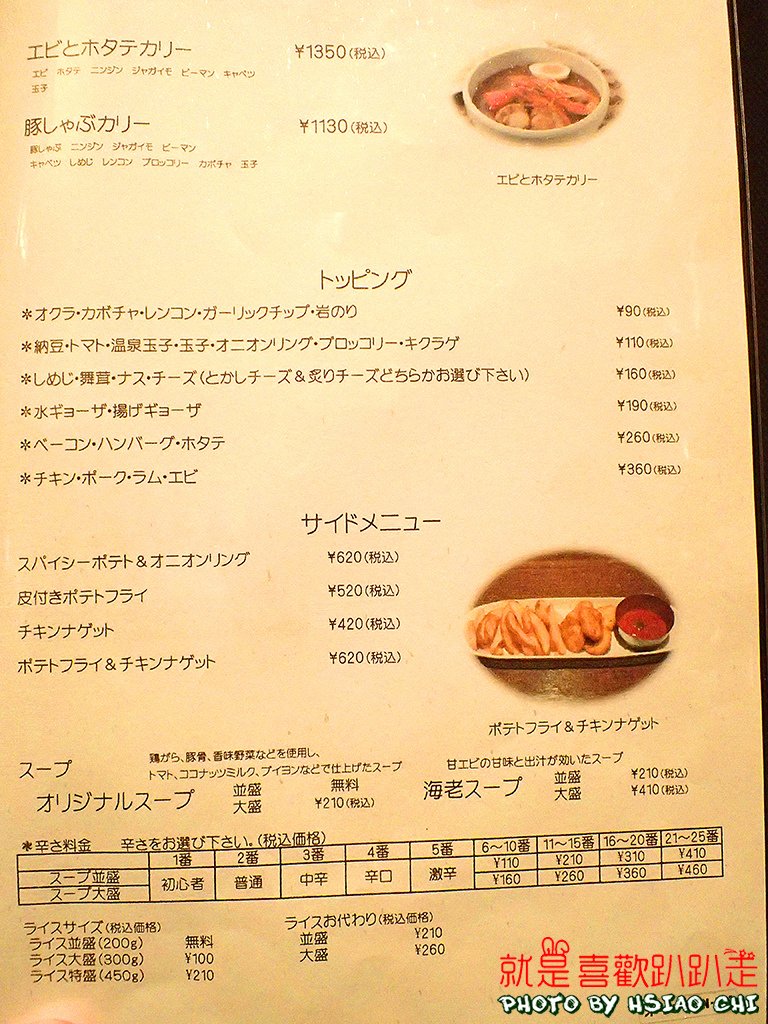 エビとホタテカリー ¥1350(税込)
エビ ホタテ ニンジン ジャガイモ ピーマン キャベツ
玉子
豚しゃぶカリー ¥1130(税込)
豚しゃぶ ニンジン ジャガイモ ピーマン
キャベツ しめじ レンコン ブロッコリー カボチャ 玉子
エビとホタテカリー
トッピング
＊オクラ・カボチャ・レンコン・ガーリックチップ・岩のり ¥90(税込)
＊納豆・トマト・温泉玉子・玉子・オニオンリング・ブロッコリー・キクラゲ ¥110(税込)
＊しめじ・舞茸・ナス・チーズ(とかしチーズ＆炙りチーズどちらかお選び下さい) ¥160(税込)
＊水ギョーザ・揚げギョーザ ¥190(税込)
＊ベーコン・ハンバーグ・ホタテ ¥260(税込)
＊チキン・ポーク・ラム・エビ ¥360(税込)
サイドメニュー
スパイシーポテト＆オニオンリング ¥620(税込)
皮付きポテトフライ ¥520(税込)
チキンナゲット ¥420(税込)
ポテトフライ＆チキンナゲット ¥620(税込)
ポテトフライ＆チキンナゲット
スープ
鶏がら、豚骨、香味野菜などを使用し、
トマト、ココナッツミルク、ブイヨンなどで仕上げたスープ
オリジナルスープ 並盛 無料
大盛 ¥210(税込)
甘エビの甘味と出汁が効いたスープ
海老スープ 並盛 ¥210(税込)
大盛 ¥410(税込)
＊辛さ料金 辛さをお選び下さい。(税込価格)
1番 2番 3番 4番 5番 6～10番 11～15番 16～20番 21～25番
スープ並盛 初心者 普通 中辛 辛口 激辛 ¥110 ¥210 ¥310 ¥410
スープ大盛 ¥160 ¥260 ¥360 ¥460
ライスサイズ(税込価格)
ライス並盛(200g) 無料
ライス大盛(300g) ¥100
ライス特盛(450g) ¥210
ライスお代わり(税込価格)
並盛 ¥210
大盛 ¥260
就是喜歡趴趴走
PHOTO BY HSIAO CHI